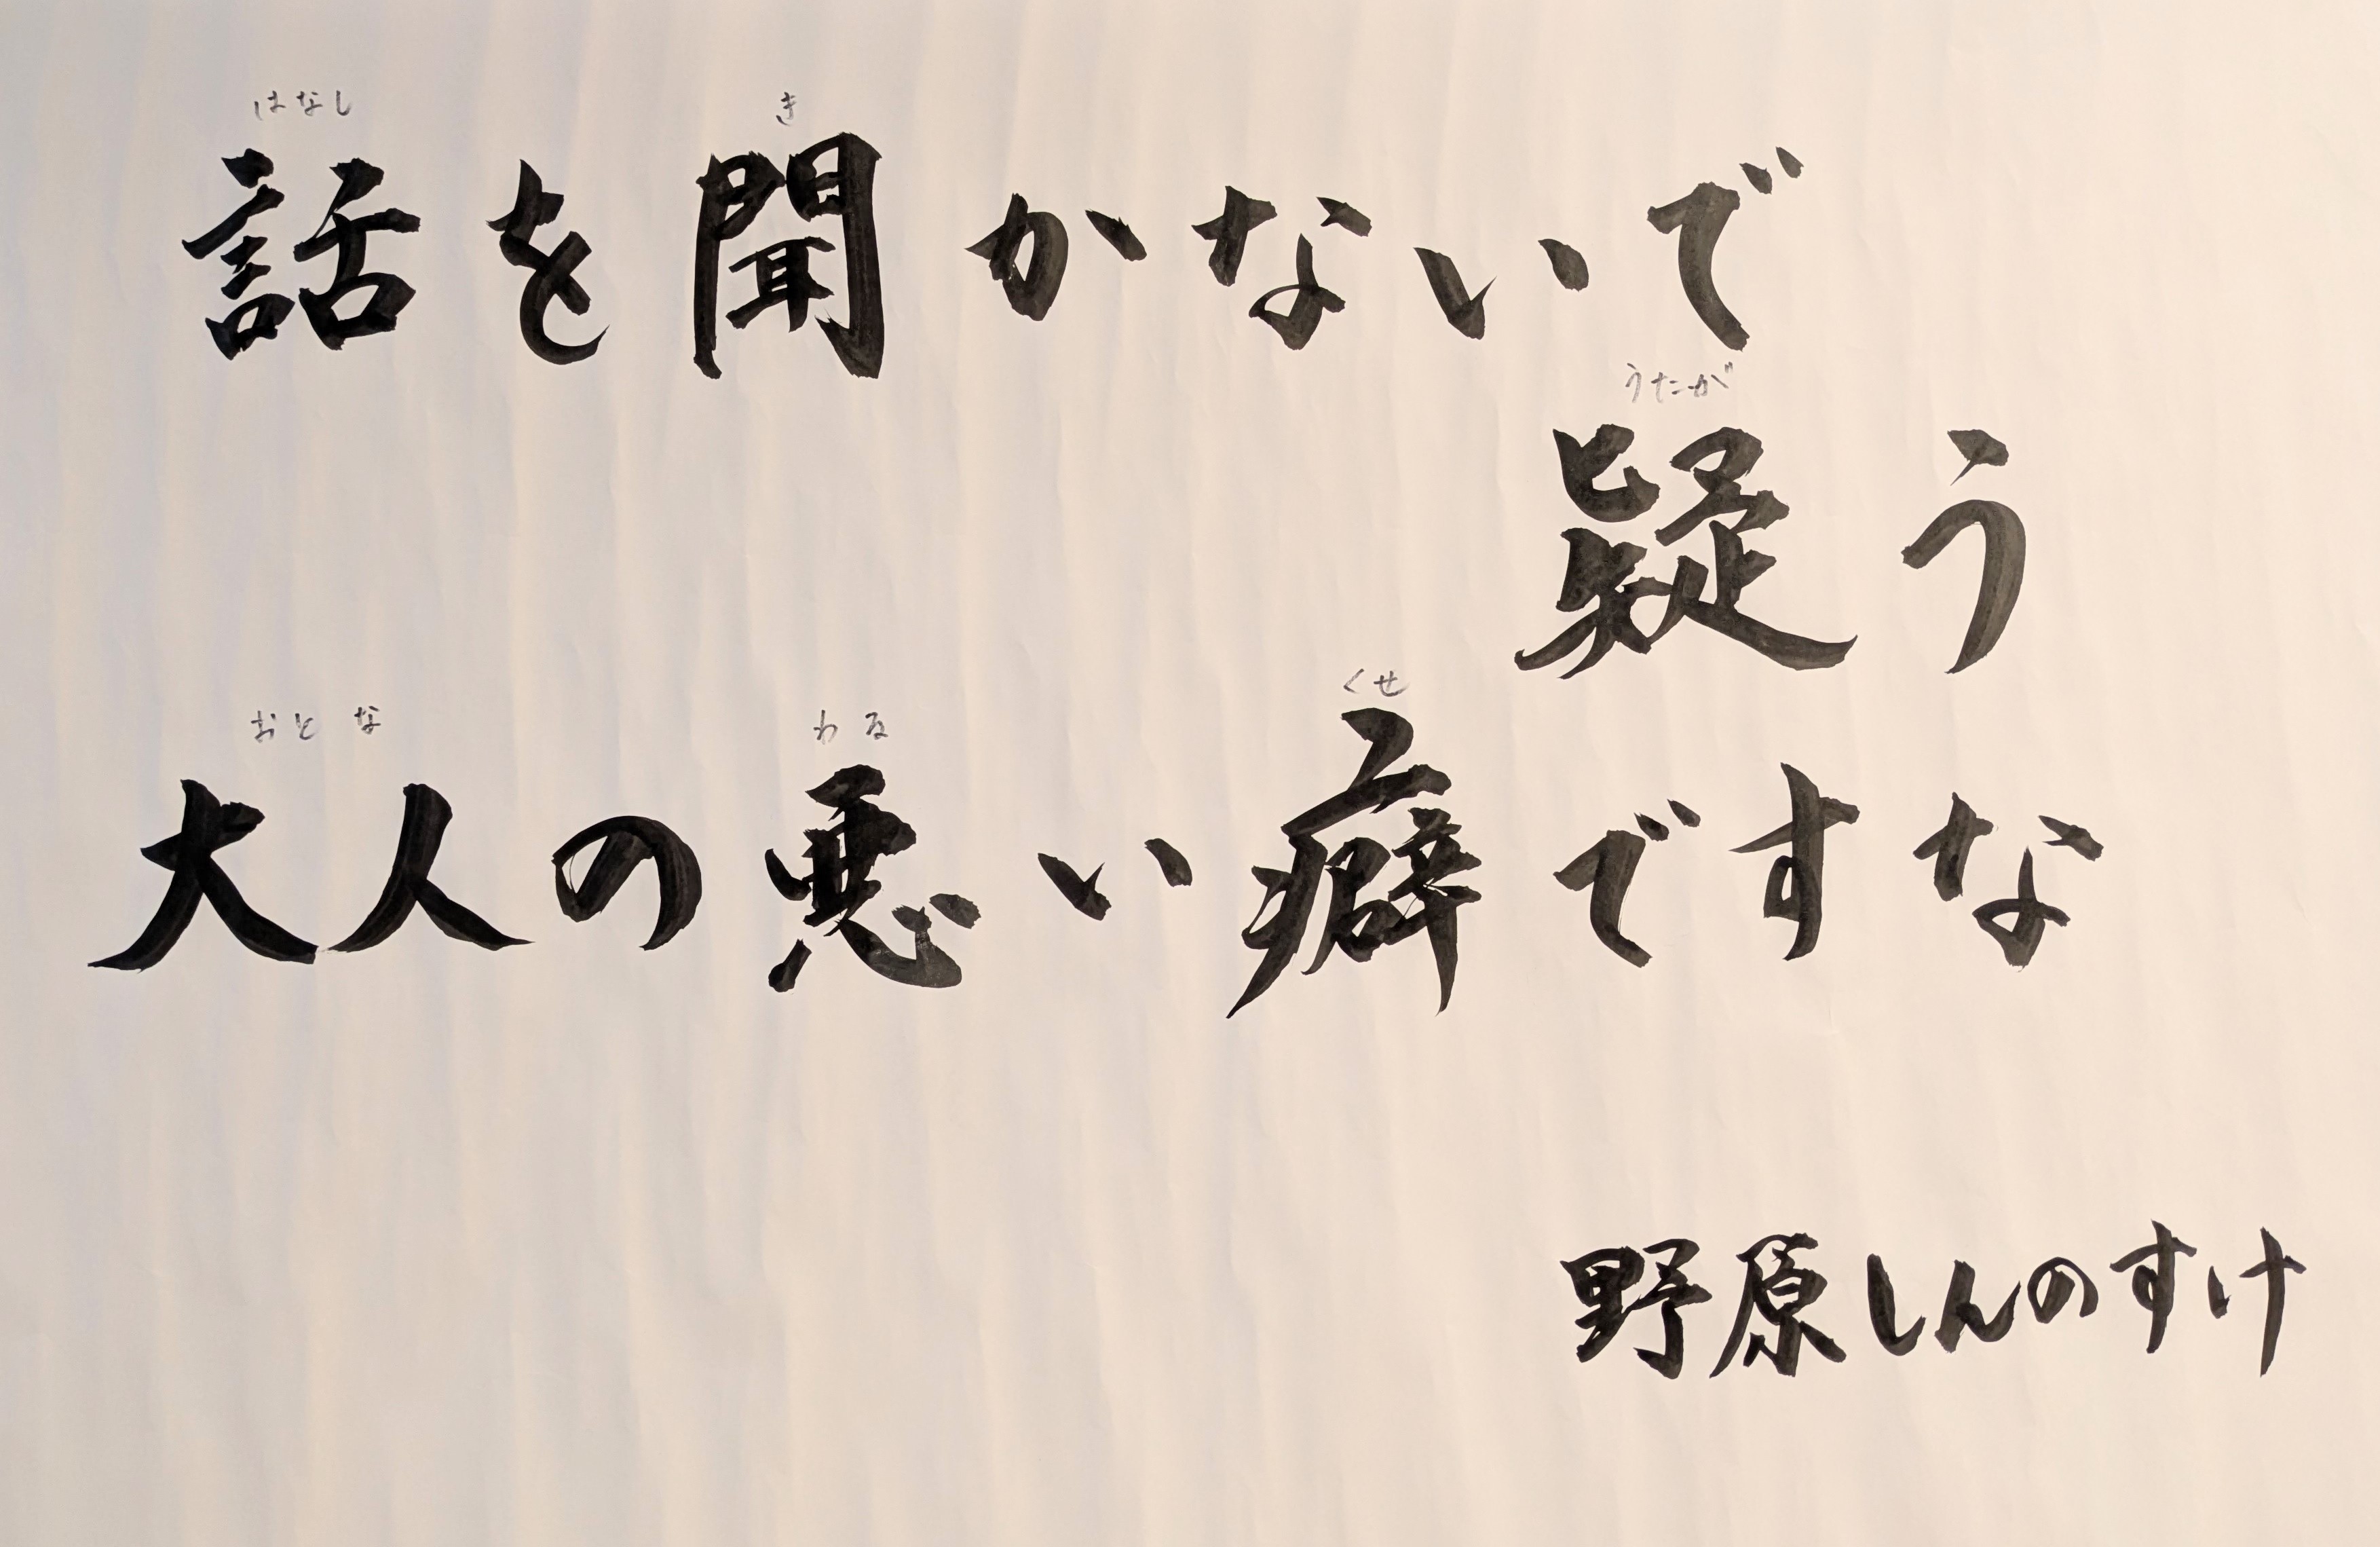 はなし き
話を聞かないで
うたが
疑う
おとな わる くせ
大人の悪い癖ですな
野原しんのすけ